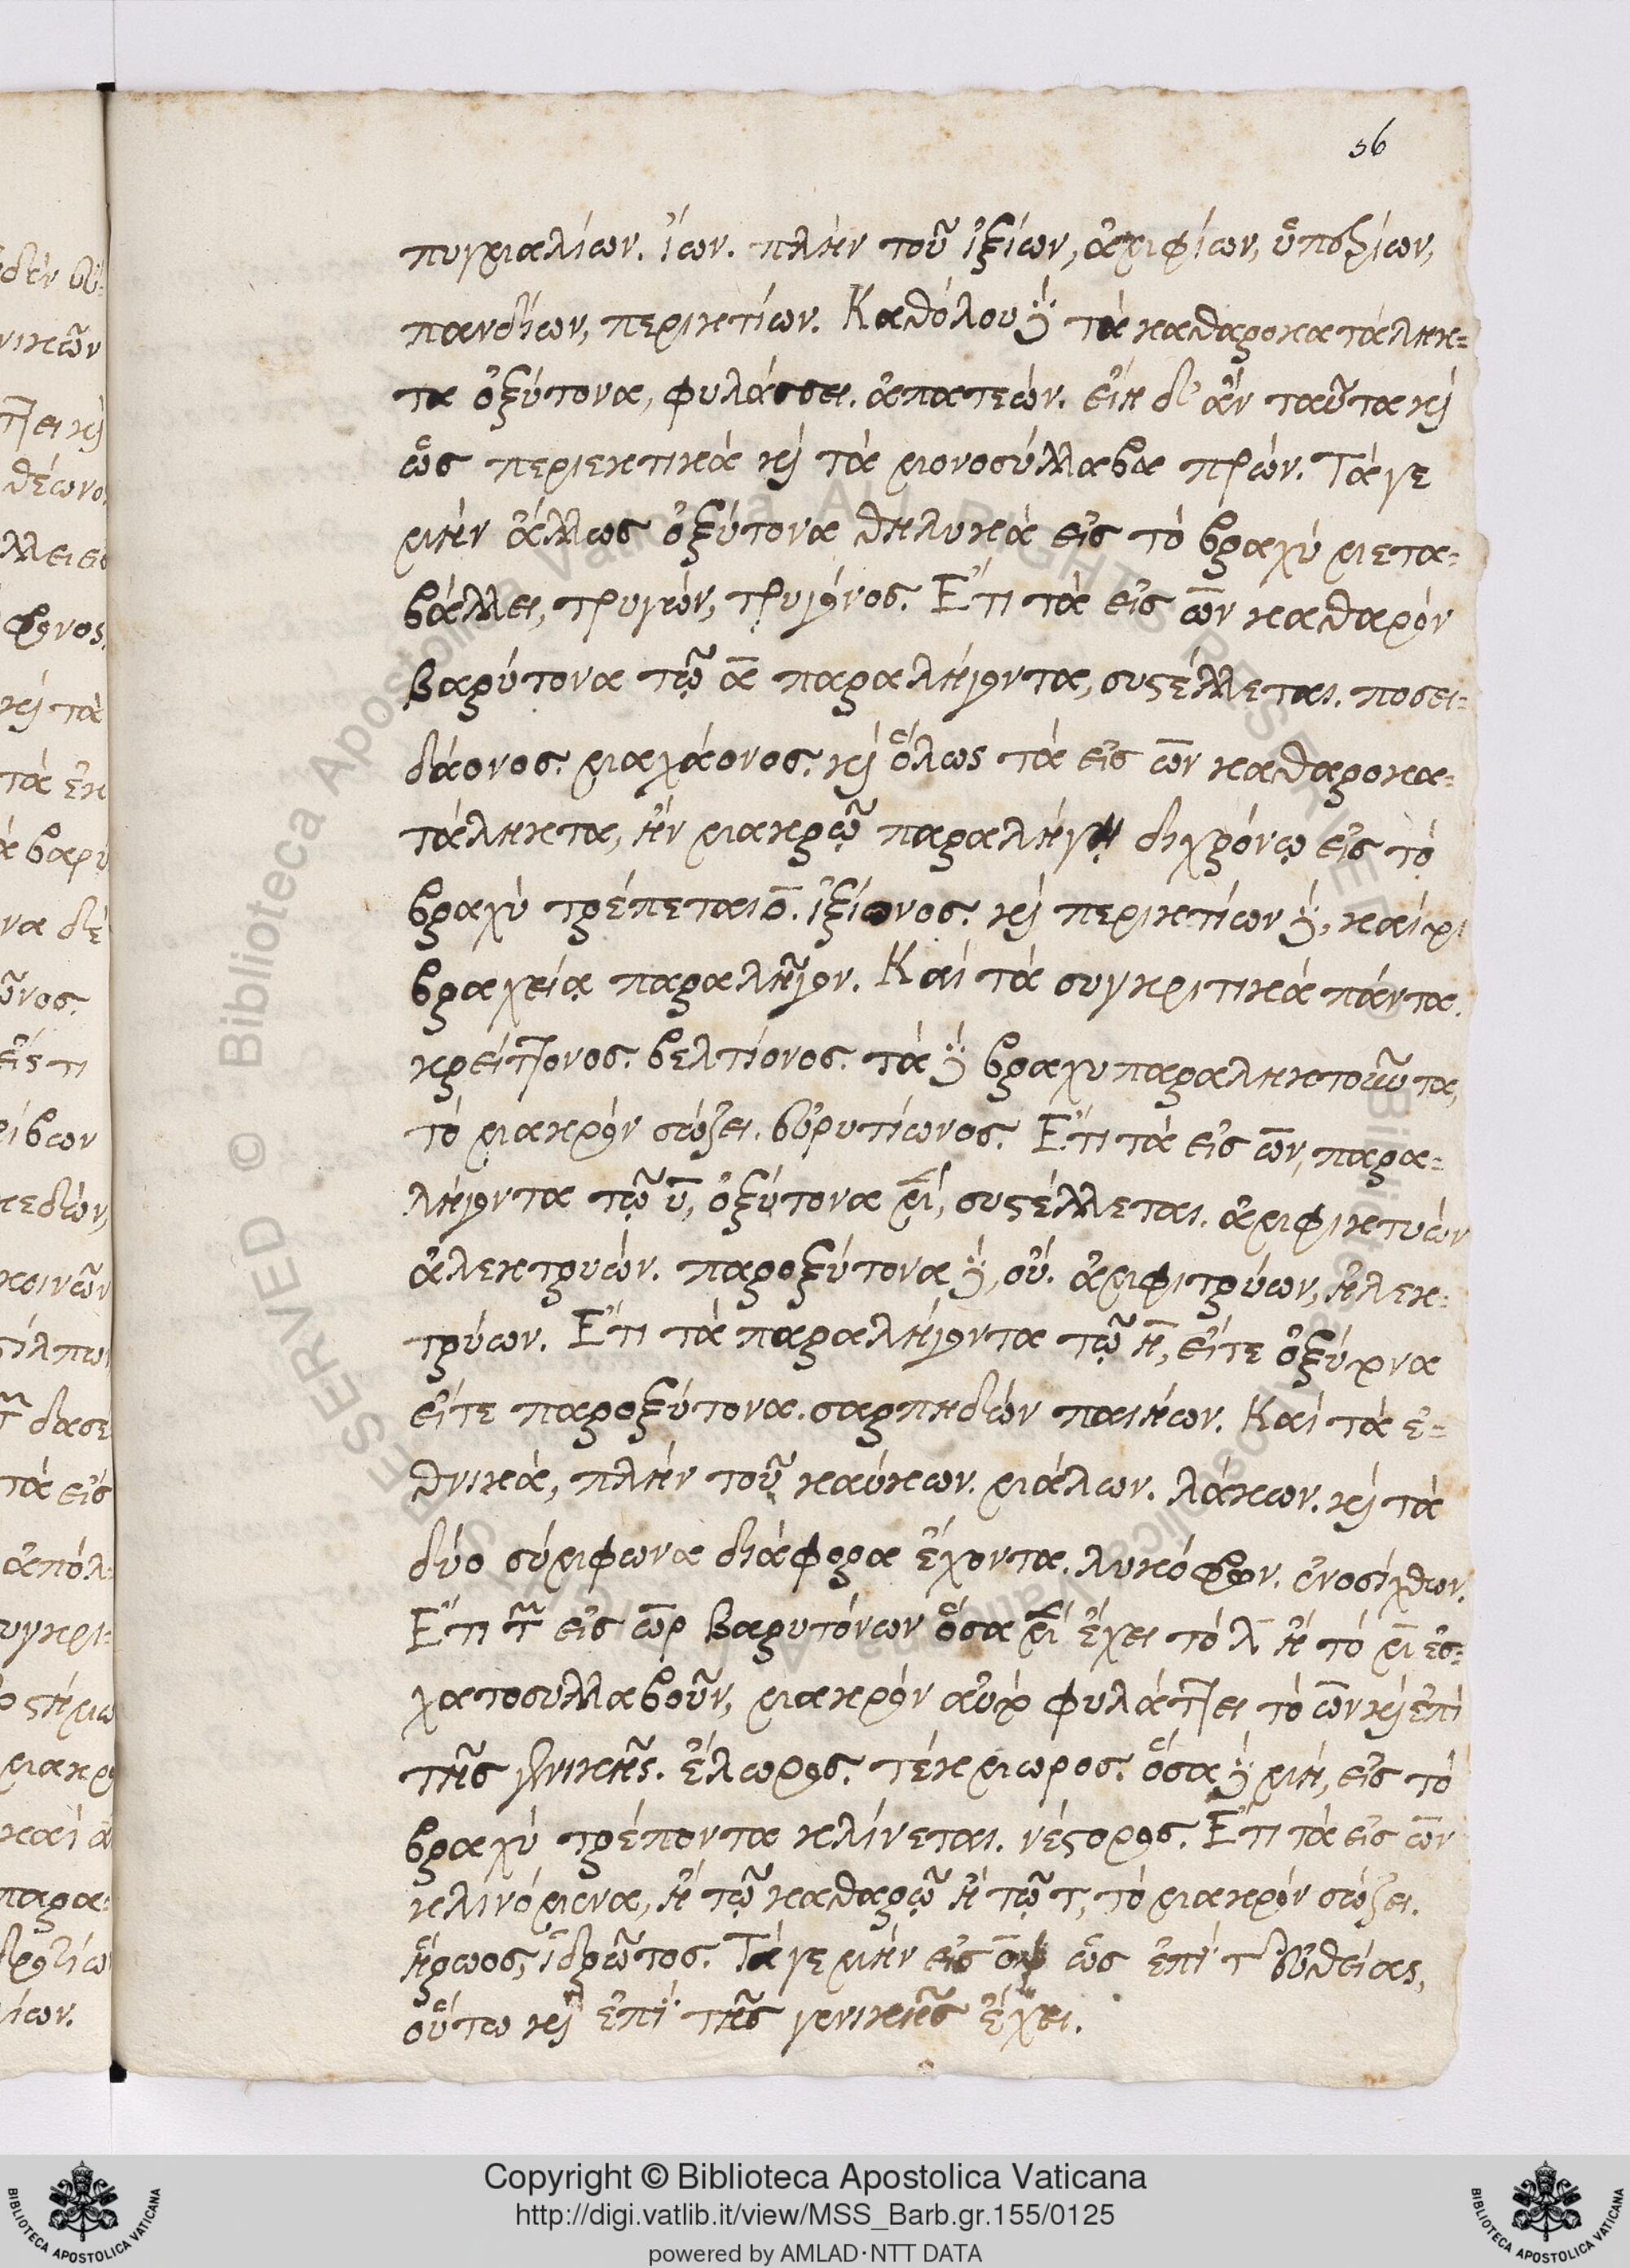 56
πυγμαλίων. ἴων. πλὴν τοῦ ἰξίων, ἀμφίων, ὑπεζίων,
πανδίων, περικτίων. Καθόλου δὲ τὰ καθαροκατάληκ=
τα ὀξύτονα, φυλάσσει. ἀπατεών. εἴη δ' ἂν ταῦτα καὶ
ὡς περιεκτικὰ καὶ τὰ μονοσύλλαβα πρών. Τά γε
μὴν ἄλλως ὀξύτονα θηλυκὰ εἰς τὸ βραχὺ μετα=
βάλλει, τρυγών, τρυγόνος. Ἔτι τὰ εἰς ων καθαρὸν
βαρύτονα τῷ α παραλήγοντα, συστέλλεται. ποσει=
δάονος. μαχάονος. καὶ ὅλως τὰ εἰς ων καθαροκα=
τάληκτα, ἢν μακρῷ παραλήγῃ διχρόνῳ εἰς τὸ
βραχὺ τρέπεται ο. ἰξίονος. καὶ περικτίων δὲ, καίτοι
βραχείᾳ παραλῆγον. Καὶ τὰ συγκριτικὰ πάντα.
κρείττονος. βελτίονος. τὰ δὲ βραχυπαραληκτοῦντα,
τὸ μακρὸν σώζει. εὐρυτίωνος. Ἔτι τὰ εἰς ων, παρα=
λήγοντα τῷ υ, ὀξύτονα μὲν, συστέλλεται. ἀμφικτυών
ἀλεκτρυών. παροξύτονα δὲ, οὔ. ἀμφιτρύων, ἠλεκ=
τρύων. Ἔτι τὰ παραλήγοντα τῷ η, εἴτε ὀξύτονα
εἴτε παροξύτονα. σαρπηδών παιήων. Καὶ τὰ ἐ=
θνικὰ, πλὴν τοῦ καύκων. μάλων. λάκων. καὶ τὰ
δύο σύμφωνα διάφορα ἔχοντα. λυκόφρον. ἐνοσίχθων.
Ἔτι τῶν εἰς ωρ βαρυτόνων ὅσα μὲν ἔχει τὸ λ ἢ τὸ μ ἐσ=
χατοσυλλαβοῦν, μακρὸν αὐτὸ φυλάττει τὸ ων καὶ ἐπὶ
τῆς γενικῆς. ἕλωρος. τέκμωρος. ὅσα δὲ μὴ, εἰς τὸ
βραχὺ τρέποντα κλίνεται. νέστορος. Ἔτι τὰ εἰς ων
κλινόμενα, ἢ τῷ καθαρῷ ἢ τῷ τ, τὸ μακρὸν σώζει.
ἥρωος, ἱδρῶτος. Τά γε μὴν εἰς ον ὡς ἐπὶ τῆς εὐθείας,
οὕτω καὶ ἐπὶ τῆς γενικῆς ἔχει.
Copyright © Biblioteca Apostolica Vaticana
http://digi.vatlib.it/view/MSS_Barb.gr.155/0125
powered by AMLAD·NTT DATA